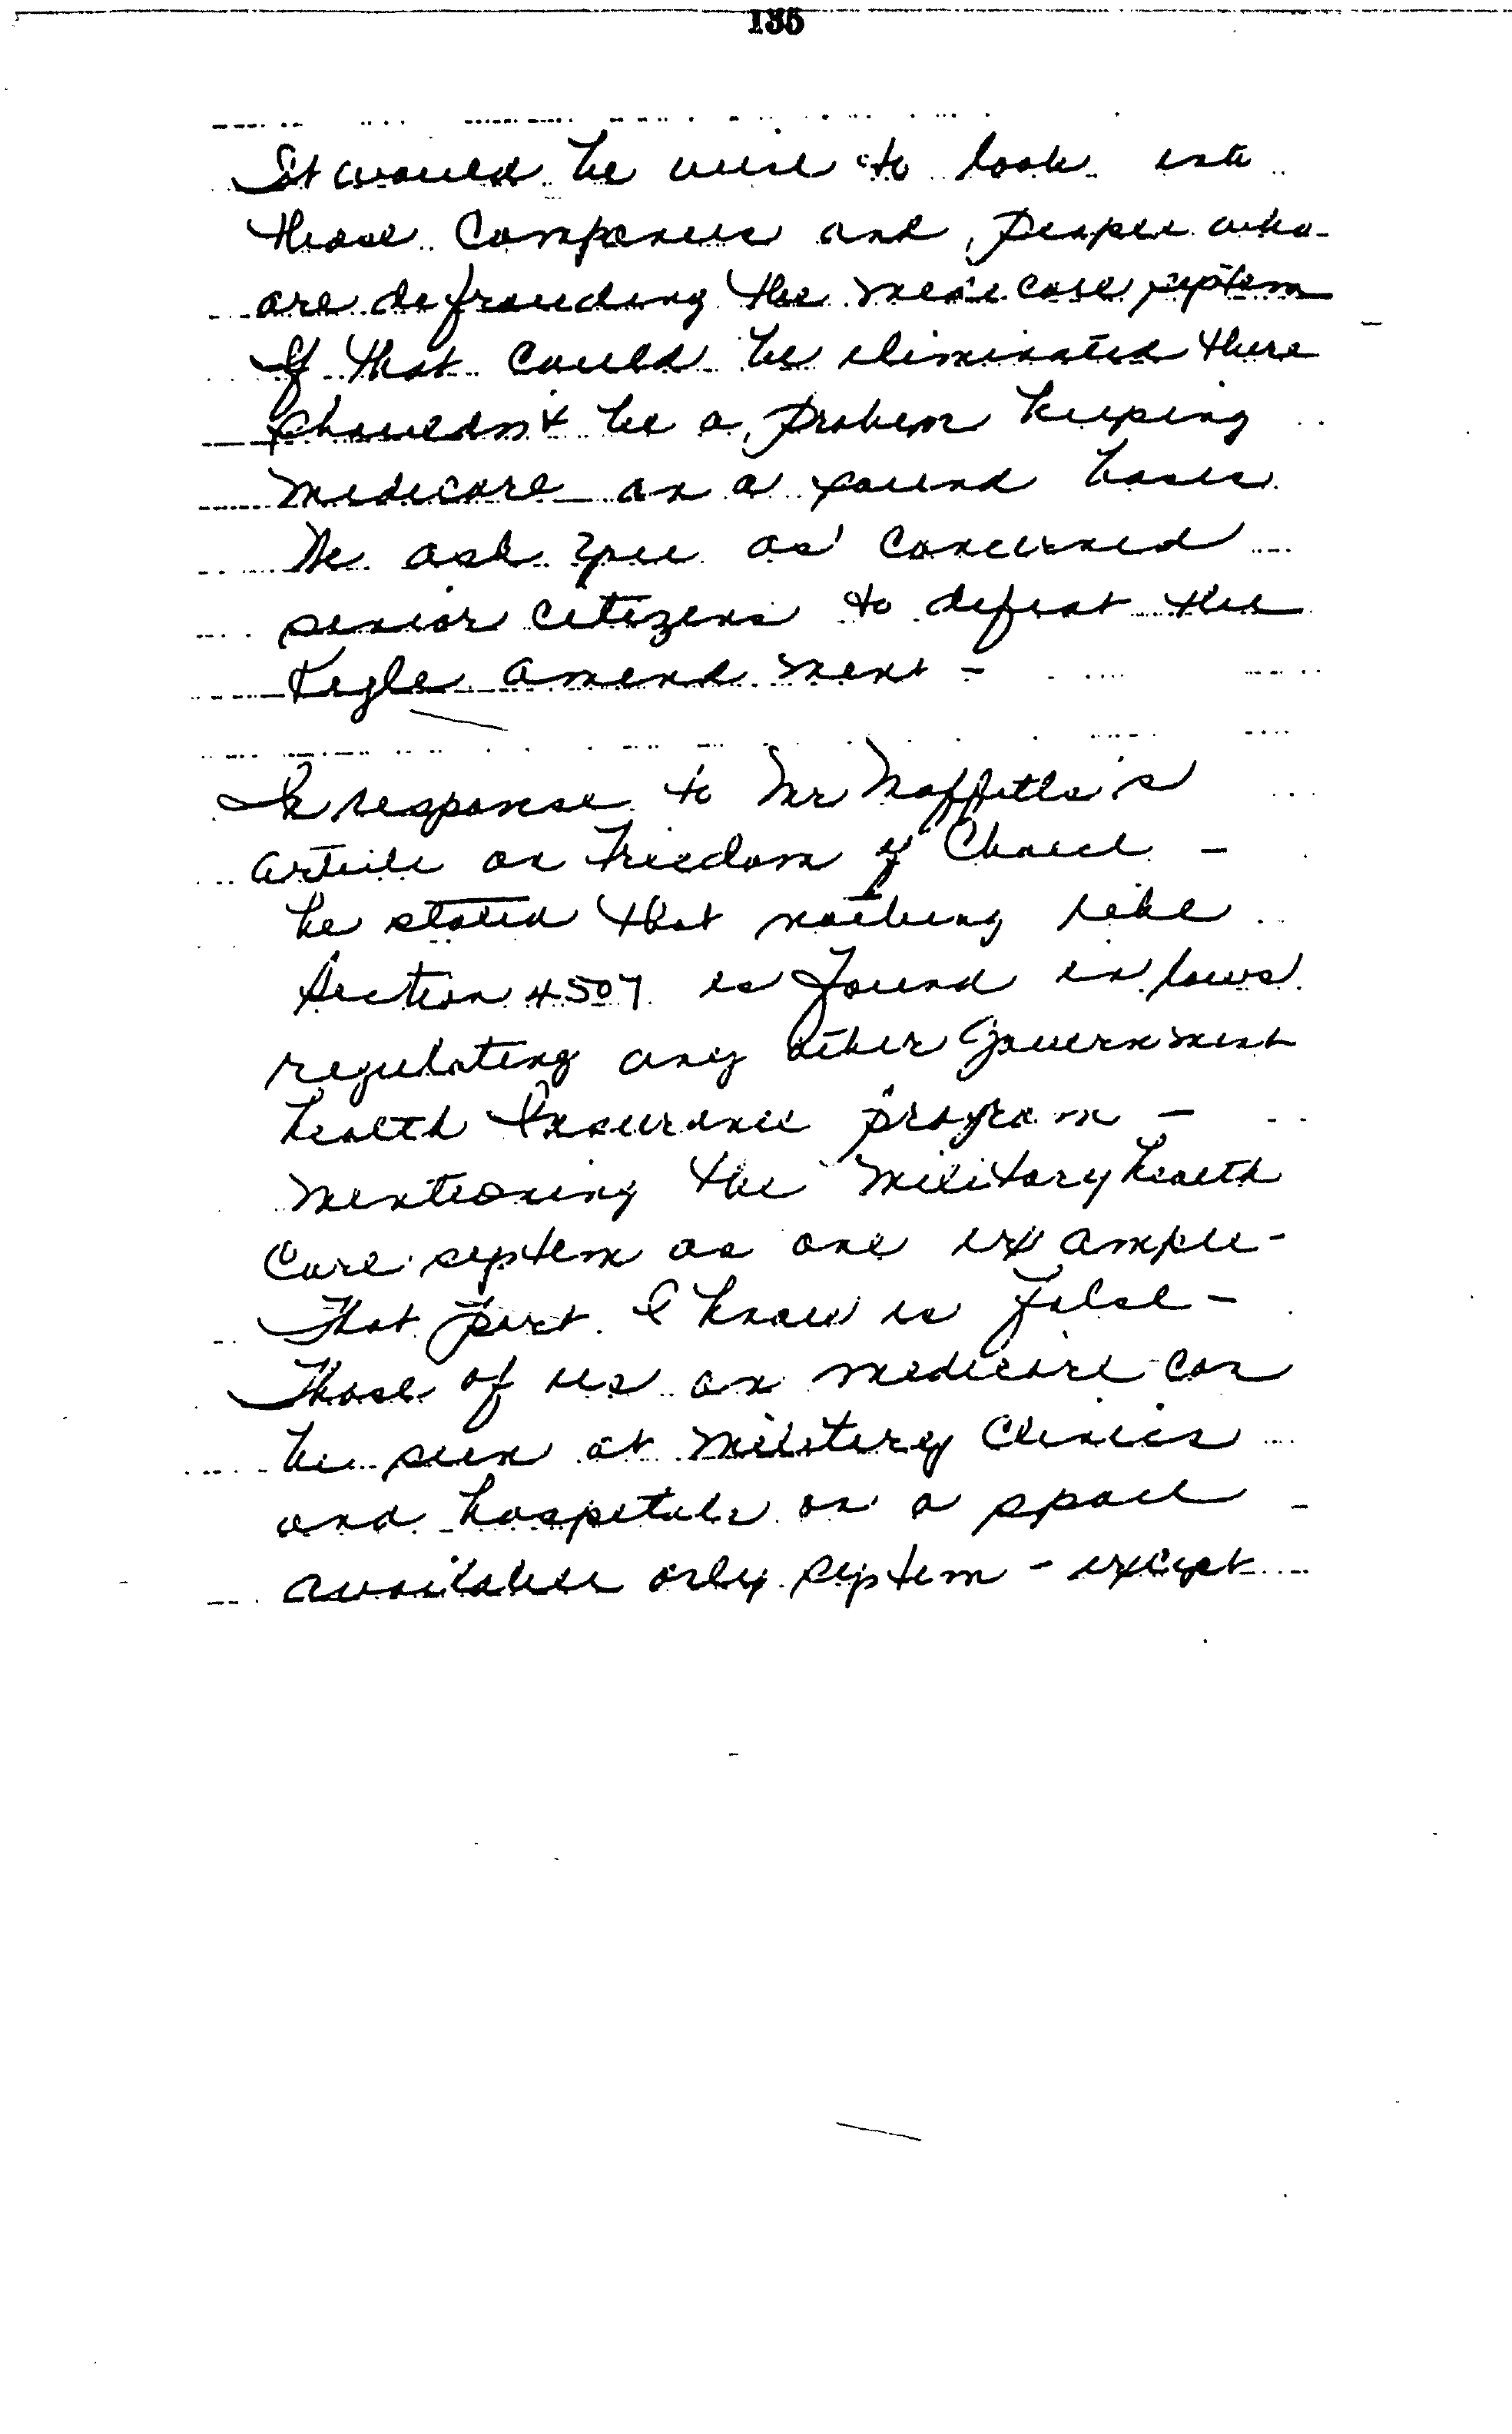 135
It would be wise to look into
those Companies and people who
are defrauding the medicare system
If that could be eliminated there
shouldn't be a problem keeping
medicare on a sound basis
We ask you as concerned
senior citizens to defeat the
Kyle amendment -
In response to Mr Moffitt's
article on Freedom of Choice -
he stated that nothing like
Section 4507 is found in laws
regulating any other Government
health Insurance program -
mentioning the military health
Care system as one example -
That part I know is false -
Those of us on medicare can
be seen at military Clinics
and hospitals on a space
available only system - except